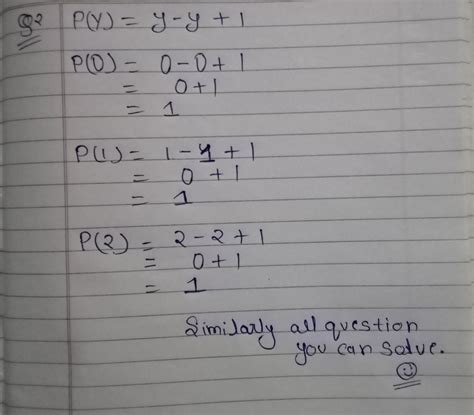 Q2 P(Y) = y - y + 1
P(0) = 0 - 0 + 1
= 0 + 1
= 1
P(1) = 1 - 1 + 1
= 0 + 1
= 1
P(2) = 2 - 2 + 1
= 0 + 1
= 1
Similarly all question
you can solve.